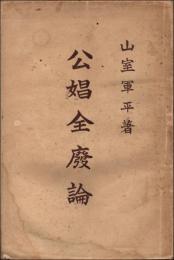 山室軍平著
公娼全廢論